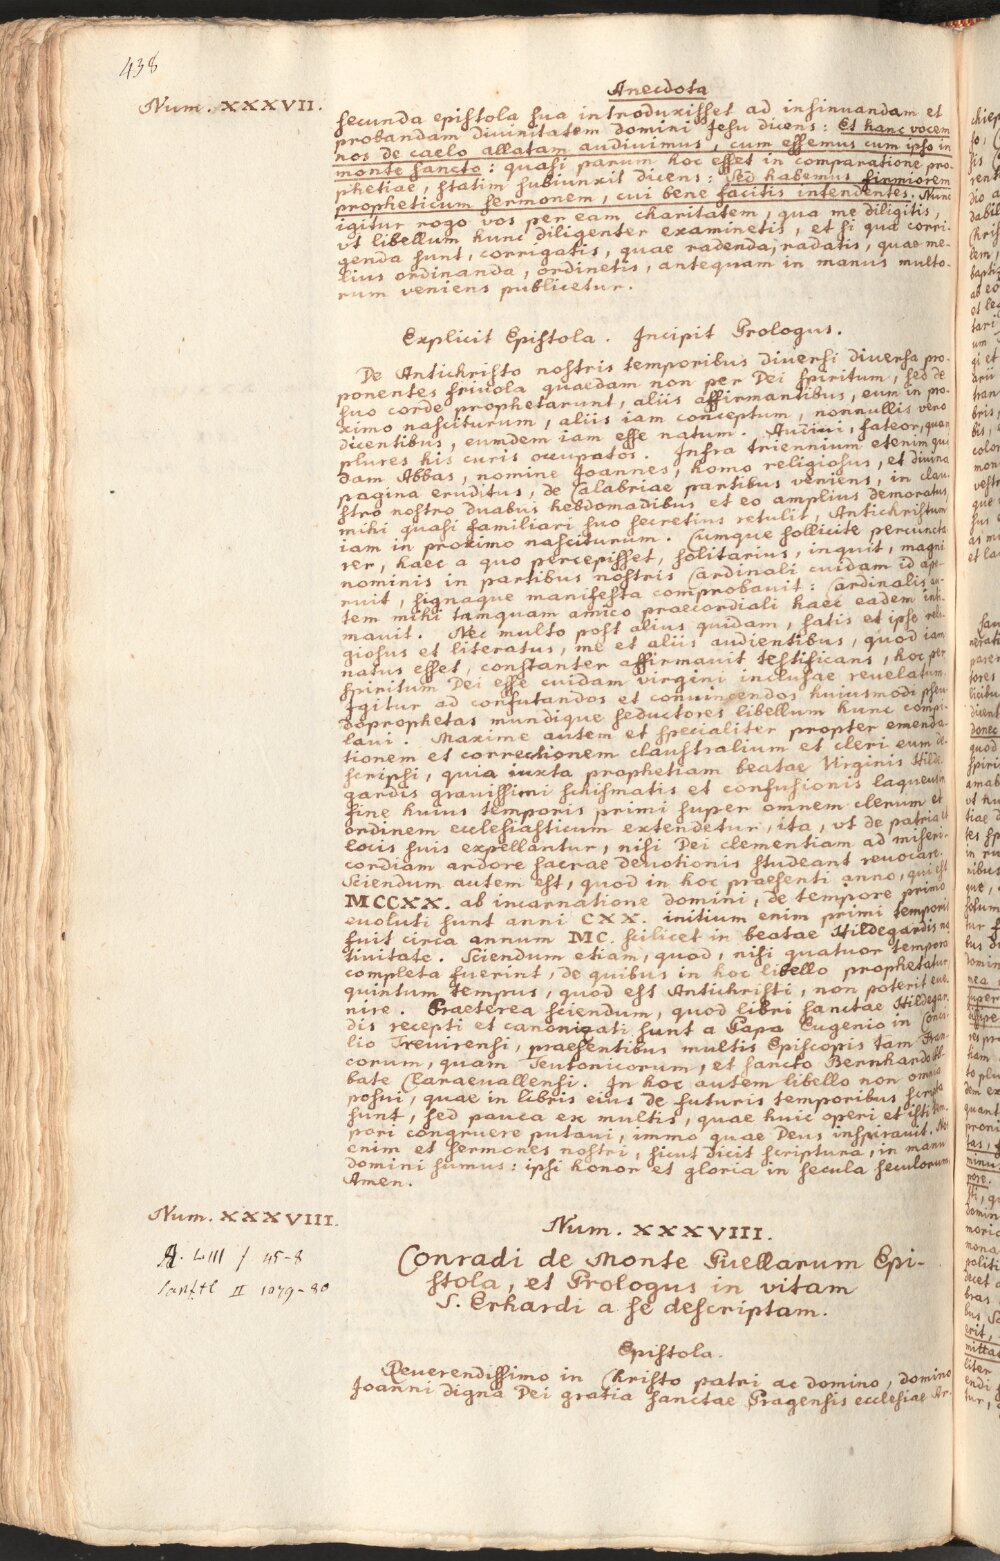 438
Anecdota
Num. XXXVII.
secunda epistola sua introduxisset ad insinuandam et
probandam divinitatem domini Jesu dicens: Et hanc vocem
nos de caelo allatam audivimus, cum essemus cum ipso in
monte sancto: quasi parum hoc esset in comparatione pro-
phetiae, statim subiunxit dicens: Sed habemus firmiorem
propheticum sermonem, cui bene facitis intendentes. Nunc
igitur rogo vos per eam charitatem, qua me diligitis,
vt libellum hunc diligenter examinetis, et si qua corri-
genda sunt, corrigatis, quae radenda, radatis, quae me-
lius ordinanda, ordinetis, antequam in manus multo-
rum veniens publicetur.
Explicit Epistola. Incipit Prologus.
De Antichristo nostris temporibus diversi diversa pro-
ponentes frivola quaedam non per Dei spiritum, sed de
suo corde prophetarunt, aliis affirmantibus, eum in pro-
ximo nasciturum, aliis iam conceptum, nonnullis vero
dicentibus, eumdem iam esse natum. Audivi, fateor, quam
plures his curis occupatos. Infra triennium etenim qui
dam Abbas, nomine Joannes, homo religiosus, et divina
pagina eruditus, de Calabriae partibus veniens, in clau
stro nostro duabus hebdomadibus et eo amplius demoratus
mihi quasi familiari suo secretius retulit, Antichristum
iam in proximo nasciturum. Cumque sollicite percuncta
rer, haec a quo percepisset, solitarius, inquit, magni
nominis in partibus nostris Cardinali cuidam id ape
ruit, signaque manifesta comprobavit: Cardinalis au-
tem mihi tamquam amico praecordiali haec eadem inti
mauit. Nec multo post alius quidam, satis et ipse reli
giosus et literatus, me et aliis audientibus, quod iam
natus esset, constanter affirmauit testificans, hoc per
spiritum Dei esse cuidam virgini inclusae reuelatum
Igitur ad confutandos et convincendos huiusmodi pseu
doprophetas mundique seductores libellum hunc compi
laui. Maxime autem et specialiter propter emenda-
tionem et correctionem claustralium et cleri eum de-
scripsi, quia iuxta prophetiam beatae Virginis Hilde
gardis grauissimi schismatis et confusionis laqueus in
fine huius temporis primi super omnem clerum et
ordinem ecclesiasticum extendetur, ita, vt de patria et
locis suis expellantur, nisi Dei clementiam ad miseri-
cordiam ardore sacrae deuotionis studeant reuocare.
Sciendum autem est, quod in hoc praesenti anno, qui est
MCCXX. ab incarnatione domini, de tempore primo
euoluti sunt anni CXX. initium enim primi temporis
fuit circa annum MC. scilicet in beatae Hildegardis na
tiuitate. Sciendum etiam, quod, nisi quatuor tempora
completa fuerint, de quibus in hoc libello prophetatur,
quintum tempus, quod est Antichristi, non poterit eue
nire. Praeterea sciendum, quod libri sanctae Hildegar
dis recepti et canonizati sunt a Papa Eugenio in Conci
lio Treuirensi, praesentibus multis Episcopis tam Fran
corum, quam Teutonicorum, et sancto Bernhardo Ab
bate Claraeuallensi. In hoc autem libello non omnia
posui, quae in libris eius de futuris temporibus scripta
sunt, sed pauca ex multis, quae huic operi et isti tem
pori congruere putaui, immo quae Deus inspirauit. Nos
enim et sermones nostri, sicut dicit scriptura, in manu
domini sumus: ipsi honor et gloria in secula seculorum
Amen.
Num. XXXVIII.
A. LIII / 45-8
Sanftl II 1079-80
Num. XXXVIII.
Conradi de Monte Puellarum Epi-
stola, et Prologus in vitam
S. Erhardi a se descriptam.
Epistola.
Reuerendissimo in Christo patri ac domino, domino
Joanni digna Dei gratia sanctae Pragensis ecclesiae Ar-